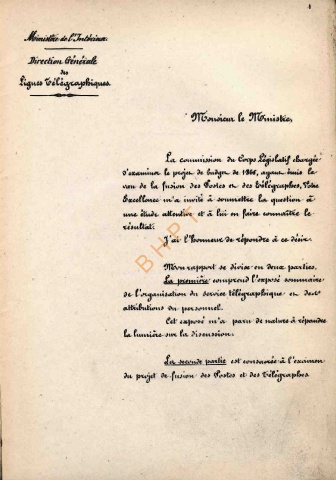 1
Ministère de l'Intérieur.
Direction Générale
des
Lignes Télégraphiques.
Monsieur le Ministre,
La commission du Corps Législatif chargée
d'examiner le projet de budget de 1866, ayant émis le
vœu de la fusion des Postes et des Télégraphes, Votre
Excellence m'a invité à soumettre la question à
une étude attentive et à lui en faire connaître le
résultat.
J'ai l'honneur de répondre à ce désir.
Mon rapport se divise en deux parties.
La première comprend l'exposé sommaire
de l'organisation du service télégraphique et des
attributions du personnel.
Cet exposé m'a paru de nature à répandre
la lumière sur la discussion.
La seconde partie est consacrée à l'examen
du projet de fusion des Postes et des Télégraphes.
BHPT